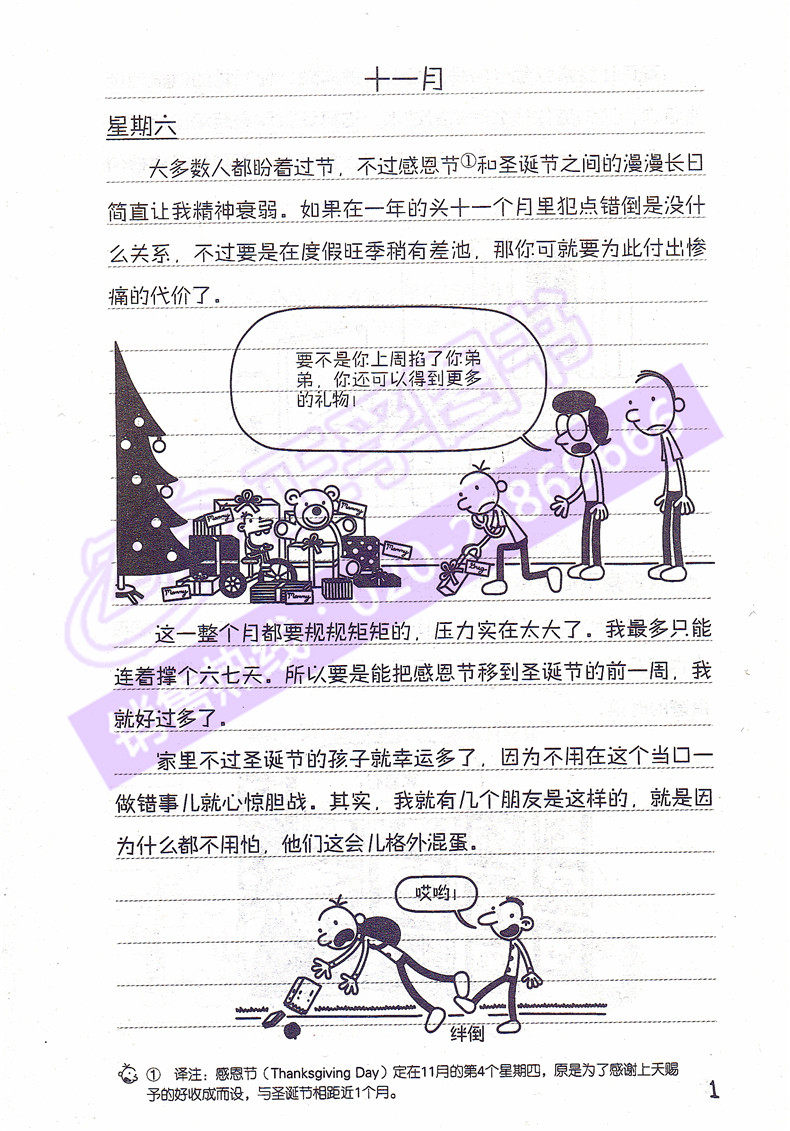 十一月
星期六
大多数人都盼着过节，不过感恩节①和圣诞节之间的漫漫长日
简直让我精神衰弱。如果在一年的头十一个月里犯点错倒是没什
么关系，不过要是在度假旺季稍有差池，那你可就要为此付出惨
痛的代价了。
要不是你上周掐了你弟
弟，你还可以得到更多
的礼物！
Manny
Manny
Manny
Manny
Manny
Greg
这一整个月都要规规矩矩的，压力实在太大了。我最多只能
连着撑个六七天。所以要是能把感恩节移到圣诞节的前一周，我
就好过多了。
家里不过圣诞节的孩子就幸运多了，因为不用在这个当口一
做错事儿就心惊胆战。其实，我就有几个朋友是这样的，就是因
为什么都不用怕，他们这会儿格外混蛋。
哎哟！
绊倒
① 译注：感恩节（Thanksgiving Day）定在11月的第4个星期四，原是为了感谢上天赐
予的好收成而设，与圣诞节相距近1个月。
1